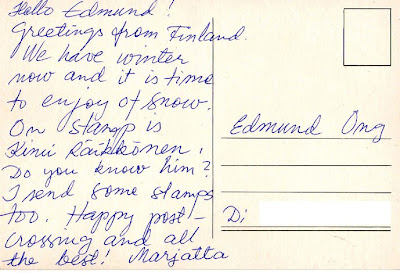 Hello Edmund!
Greetings from Finland.
We have winter
now and it is time
to enjoy of snow.
On stamp is
Kimi Räikkönen,
Do you know him?
I send some stamps
too. Happy post-
crossing and all
the best! Marjatta
Edmund Ong
D: